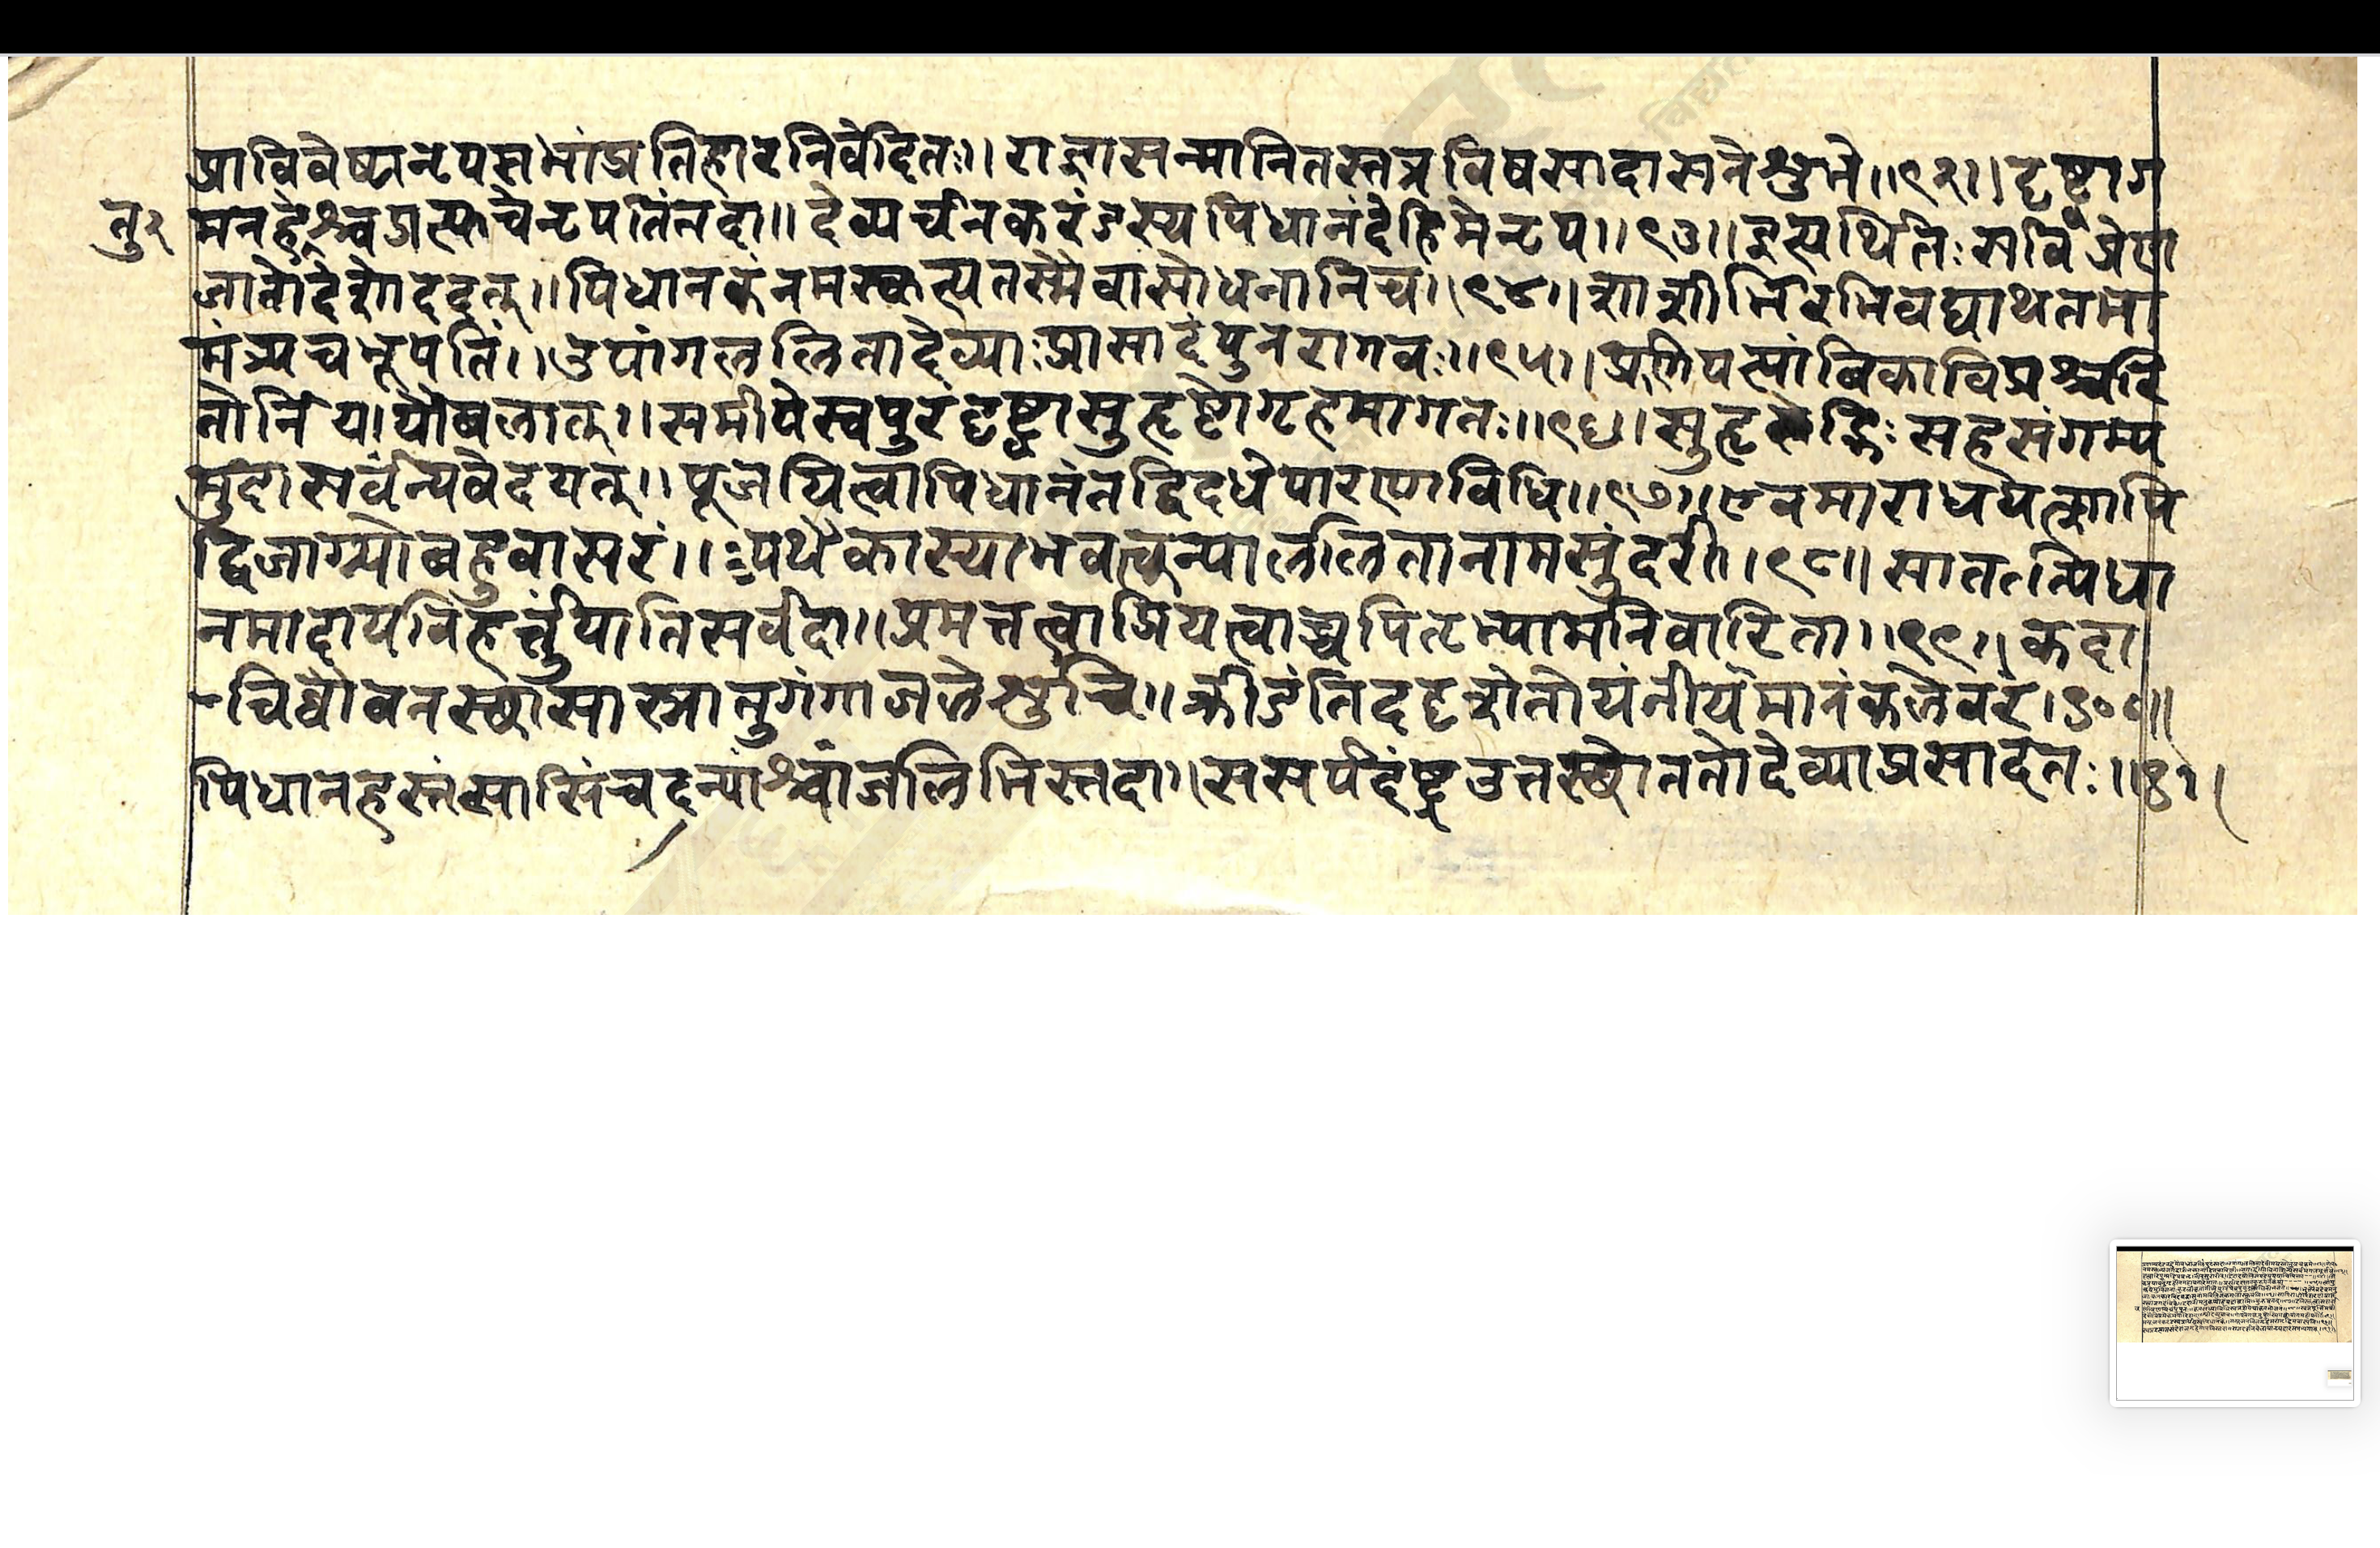 प्राविवेशनृपसभांप्रतिहारनिवेदितः।। राज्ञासन्मानितस्तत्रविषसादासनेशुभे।।९२।।दृष्ट्वाग
तु२ मनहेश्चप्रत्यूचेनृपतिंतदा।। देव्यर्चनकरंडस्यपिधानंदेहिमेनृप।।९३।।इत्यर्थितःसविप्रेण
जातोदेशोददत्।।पिधानकंनमस्कृत्यतस्मैवासोधनानिच।।९४।।आशीर्भिरभिवद्याथतमा
मंत्र्यचभूपतिं।।उपांगललितादेव्याःप्रासादंपुनरागतः।।९५।।प्रणिपत्यांबिकांविप्रश्चलि
तोनिर्ययौबलात्।।समीपेस्वपुरंदृष्ट्वासुहृष्टोगृहमागतः।।९६।।सुहृद्भिःसहसंगम्य
मुदासर्वंन्यवेदयत्।।पूजयित्वापिधानंतद्विदधेपारणाविधि।।९७।।एवमाराधयत्कापि
द्विजाग्र्योबहुवासरं।।पथैकास्याभवत्कन्याललितानामसुंदरी।।९८।।सातत्पिधा
नमादायविहर्त्तुंयातिसर्वदा।।प्रमत्तत्वात्प्रियत्वाच्चपितृभ्यामनिवारिता।।९९।।कदा
चिद्यौवनस्थासास्नातुगंगाजलेशुचि।।क्रीडंतिददृशेतोयंनीयमानंकलेवरं।१००।।
पिधानहस्तंसासिंचदन्यांश्चांजलिभिस्तदा।।ससर्पदंष्ट्रउत्तस्थौततोदेव्याप्रसादतः।।१।।